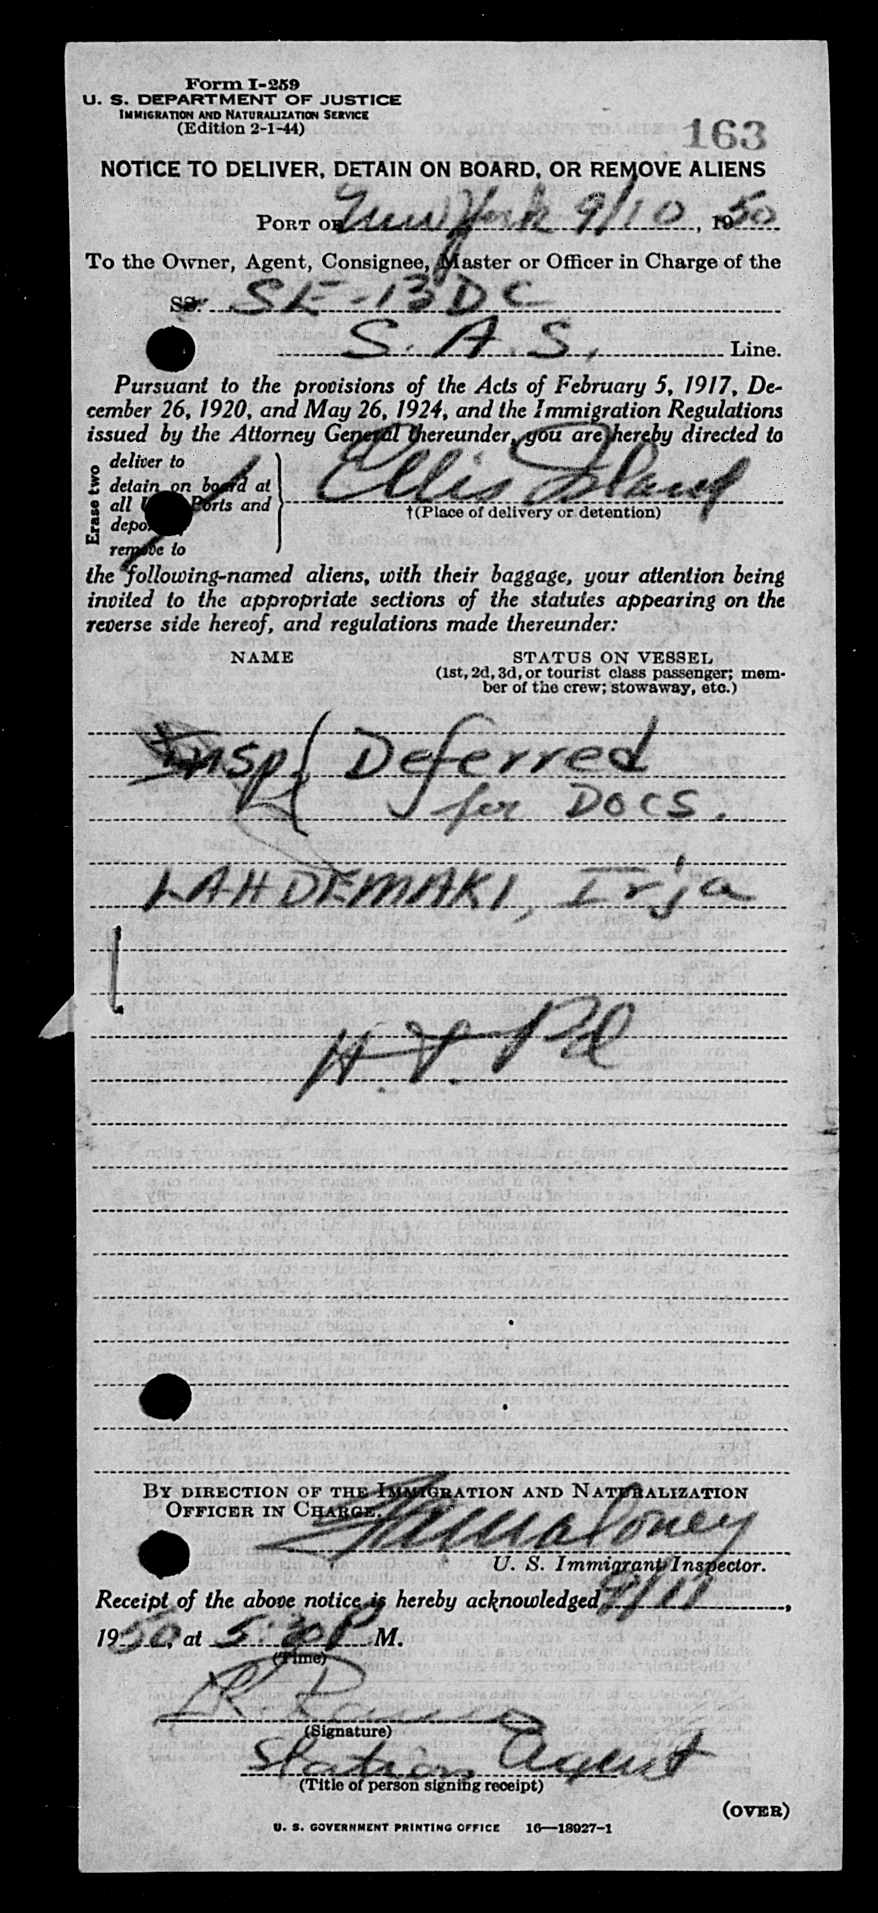 Form I-259
U. S. DEPARTMENT OF JUSTICE
IMMIGRATION AND NATURALIZATION SERVICE
(Edition 2-1-44)
163
NOTICE TO DELIVER, DETAIN ON BOARD, OR REMOVE ALIENS
PORT OF New York 9/10, 1950
To the Owner, Agent, Consignee, Master or Officer in Charge of the
SS. SE-BDC
S. A. S. Line.
Pursuant to the provisions of the Acts of February 5, 1917, De-
cember 26, 1920, and May 26, 1924, and the Immigration Regulations
issued by the Attorney General thereunder, you are hereby directed to
Erase two
deliver to
detain on board at
all Ports and
remove to
Ellis Island
†(Place of delivery or detention)
the following-named aliens, with their baggage, your attention being
invited to the appropriate sections of the statutes appearing on the
reverse side hereof, and regulations made thereunder:
NAME STATUS ON VESSEL
(1st, 2d, 3d, or tourist class passenger; mem-
ber of the crew; stowaway, etc.)
Insp Deferred
for DOCS.
LAHDEMAKI, Irja
BY DIRECTION OF THE IMMIGRATION AND NATURALIZATION
OFFICER IN CHARGE.
Maloney
U. S. Immigrant Inspector.
Receipt of the above notice is hereby acknowledged 9/11,
1950, at 5:30 P M.
(Time)
(Signature)
Station Agent
(Title of person signing receipt)
(OVER)
U. S. GOVERNMENT PRINTING OFFICE 16—18927-1